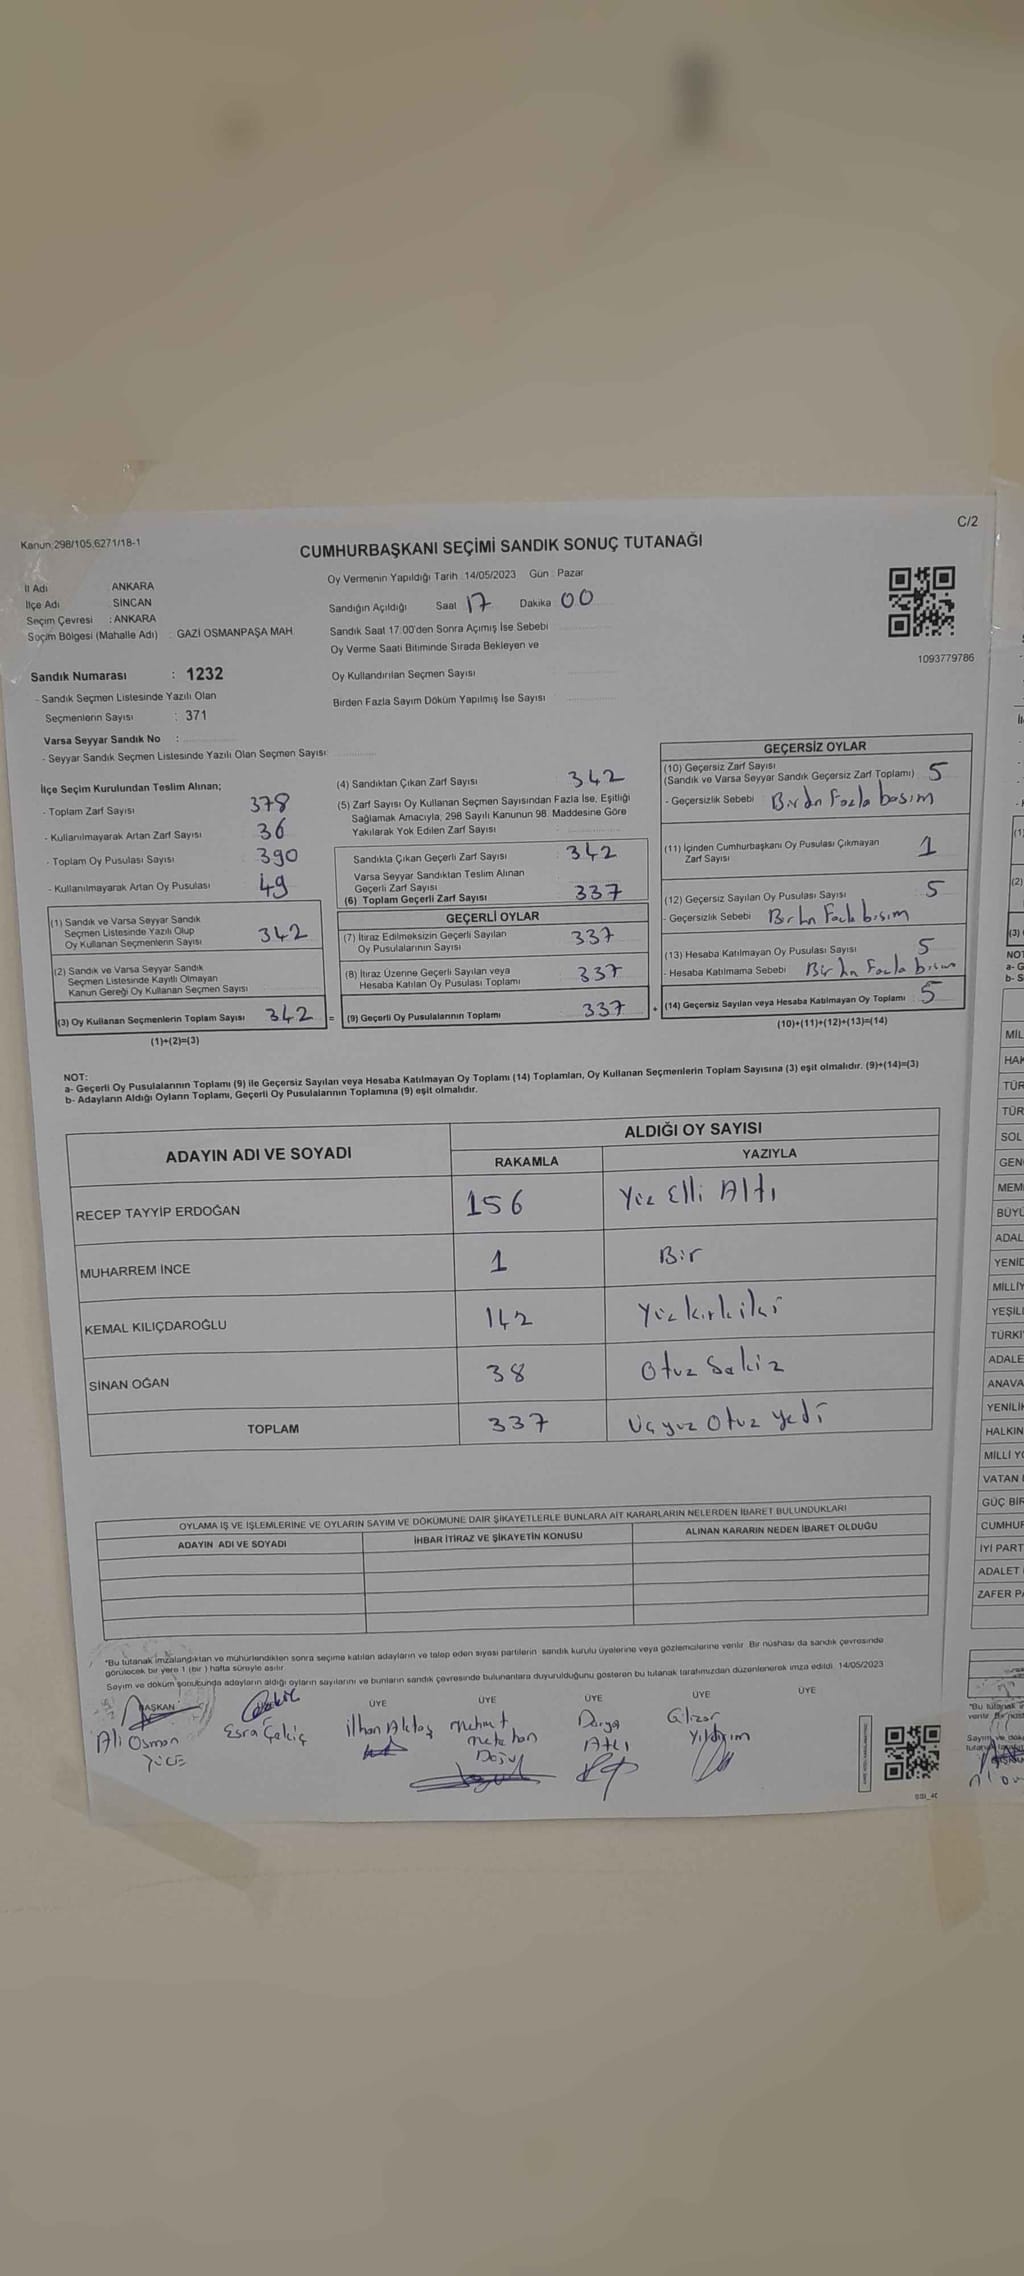 C/2
Kanun 298/105,6271/18-1
CUMHURBAŞKANI SEÇİMİ SANDIK SONUÇ TUTANAĞI
İl Adı : ANKARA
İlçe Adı : SİNCAN
Seçim Çevresi : ANKARA
Seçim Bölgesi (Mahalle Adı) : GAZİ OSMANPAŞA MAH.
Oy Vermenin Yapıldığı Tarih : 14/05/2023 Gün : Pazar
Sandığın Açıldığı Saat 17 Dakika 00
Sandık Saat 17:00'den Sonra Açımış İse Sebebi
Oy Verme Saati Bitiminde Sırada Bekleyen ve
Oy Kullandırılan Seçmen Sayısı
Birden Fazla Sayım Döküm Yapılmış İse Sayısı
1093779786
Sandık Numarası : 1232
- Sandık Seçmen Listesinde Yazılı Olan
Seçmenlerin Sayısı : 371
Varsa Seyyar Sandık No :
- Seyyar Sandık Seçmen Listesinde Yazılı Olan Seçmen Sayısı:
İlçe Seçim Kurulundan Teslim Alınan;
- Toplam Zarf Sayısı 378
- Kullanılmayarak Artan Zarf Sayısı 36
- Toplam Oy Pusulası Sayısı 390
- Kullanılmayarak Artan Oy Pusulası 49
(1) Sandık ve Varsa Seyyar Sandık
Seçmen Listesinde Yazılı Olup
Oy Kullanan Seçmenlerin Sayısı 342
(2) Sandık ve Varsa Seyyar Sandık
Seçmen Listesinde Kayıtlı Olmayan
Kanun Gereği Oy Kullanan Seçmen Sayısı
(3) Oy Kullanan Seçmenlerin Toplam Sayısı 342 =
(1)+(2)=(3)
(4) Sandıktan Çıkan Zarf Sayısı 342
(5) Zarf Sayısı Oy Kullanan Seçmen Sayısından Fazla İse, Eşitliği
Sağlamak Amacıyla, 298 Sayılı Kanunun 98. Maddesine Göre
Yakılarak Yok Edilen Zarf Sayısı
Sandıkta Çıkan Geçerli Zarf Sayısı 342
Varsa Seyyar Sandıktan Teslim Alınan
Geçerli Zarf Sayısı
(6) Toplam Geçerli Zarf Sayısı 337
GEÇERLİ OYLAR
(7) İtiraz Edilmeksizin Geçerli Sayılan
Oy Pusulalarının Sayısı 337
(8) İtiraz Üzerine Geçerli Sayılan veya
Hesaba Katılan Oy Pusulası Toplamı 337
(9) Geçerli Oy Pusulalarının Toplamı 337 +
GEÇERSİZ OYLAR
(10) Geçersiz Zarf Sayısı
(Sandık ve Varsa Seyyar Sandık Geçersiz Zarf Toplamı) 5
- Geçersizlik Sebebi Birdn Fazla basım
(11) İçinden Cumhurbaşkanı Oy Pusulası Çıkmayan
Zarf Sayısı 1
(12) Geçersiz Sayılan Oy Pusulası Sayısı 5
- Geçersizlik Sebebi Birdn Fazla basım
(13) Hesaba Katılmayan Oy Pusulası Sayısı 5
- Hesaba Katılmama Sebebi Birdn Fazla basım
(14) Geçersiz Sayılan veya Hesaba Katılmayan Oy Toplamı 5
(10)+(11)+(12)+(13)=(14)
NOT:
a- Geçerli Oy Pusulalarının Toplamı (9) ile Geçersiz Sayılan veya Hesaba Katılmayan Oy Toplamı (14) Toplamları, Oy Kullanan Seçmenlerin Toplam Sayısına (3) eşit olmalıdır. (9)+(14)=(3)
b- Adayların Aldığı Oyların Toplamı, Geçerli Oy Pusulalarının Toplamına (9) eşit olmalıdır.
ADAYIN ADI VE SOYADI
ALDIĞI OY SAYISI
RAKAMLA YAZIYLA
RECEP TAYYİP ERDOĞAN 156 Yüz Elli Altı
MUHARREM İNCE 1 Bir
KEMAL KILIÇDAROĞLU 142 Yüz kırk iki
SİNAN OĞAN 38 Otuz Sekiz
TOPLAM 337 Üçyüz Otuz yedi
OYLAMA İŞ VE İŞLEMLERİNE VE OYLARIN SAYIM VE DÖKÜMÜNE DAİR ŞİKAYETLERLE BUNLARA AİT KARARLARIN NELERDEN İBARET BULUNDUKLARI
ADAYIN ADI VE SOYADI İHBAR İTİRAZ VE ŞİKAYETİN KONUSU ALINAN KARARIN NEDEN İBARET OLDUĞU
*Bu tutanak imzalandıktan ve mühürlendikten sonra seçime katılan adayların ve talep eden siyasi partilerin sandık kurulu üyelerine veya gözlemcilerine verilir. Bir nüshası da sandık çevresinde
görülecek bir yere 1 (bir) hafta süreyle asılır.
Sayım ve döküm sonucunda adayların aldığı oyların sayılarını ve bunların sandık çevresinde bulunanlara duyurulduğunu gösteren bu tutanak tarafımızdan düzenlenerek imza edildi. 14/05/2023
BAŞKAN ÜYE ÜYE ÜYE ÜYE ÜYE
Ali Osman YÜCE
Esra Çekiç
İlhan Aktaş
Mehmet Metehan Doğul
Derya Atlı
Gülizar Yıldırım
MİL
HAK
TÜR
TÜR
SOL
GEN
MEM
BÜYÜ
ADAL
YENİD
MİLLİY
YEŞİL
TÜRKİ
ADALE
ANAVA
YENİLİK
HALKIN
MİLLİ YO
VATAN
GÜÇ BİR
CUMHUR
İYİ PART
ADALET
ZAFER PA